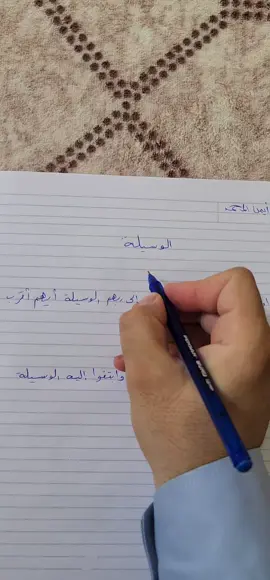 الوسيلة
إلى ربهم الوسيلة أيهم أقرب
وابتغوا إليه الوسيلة